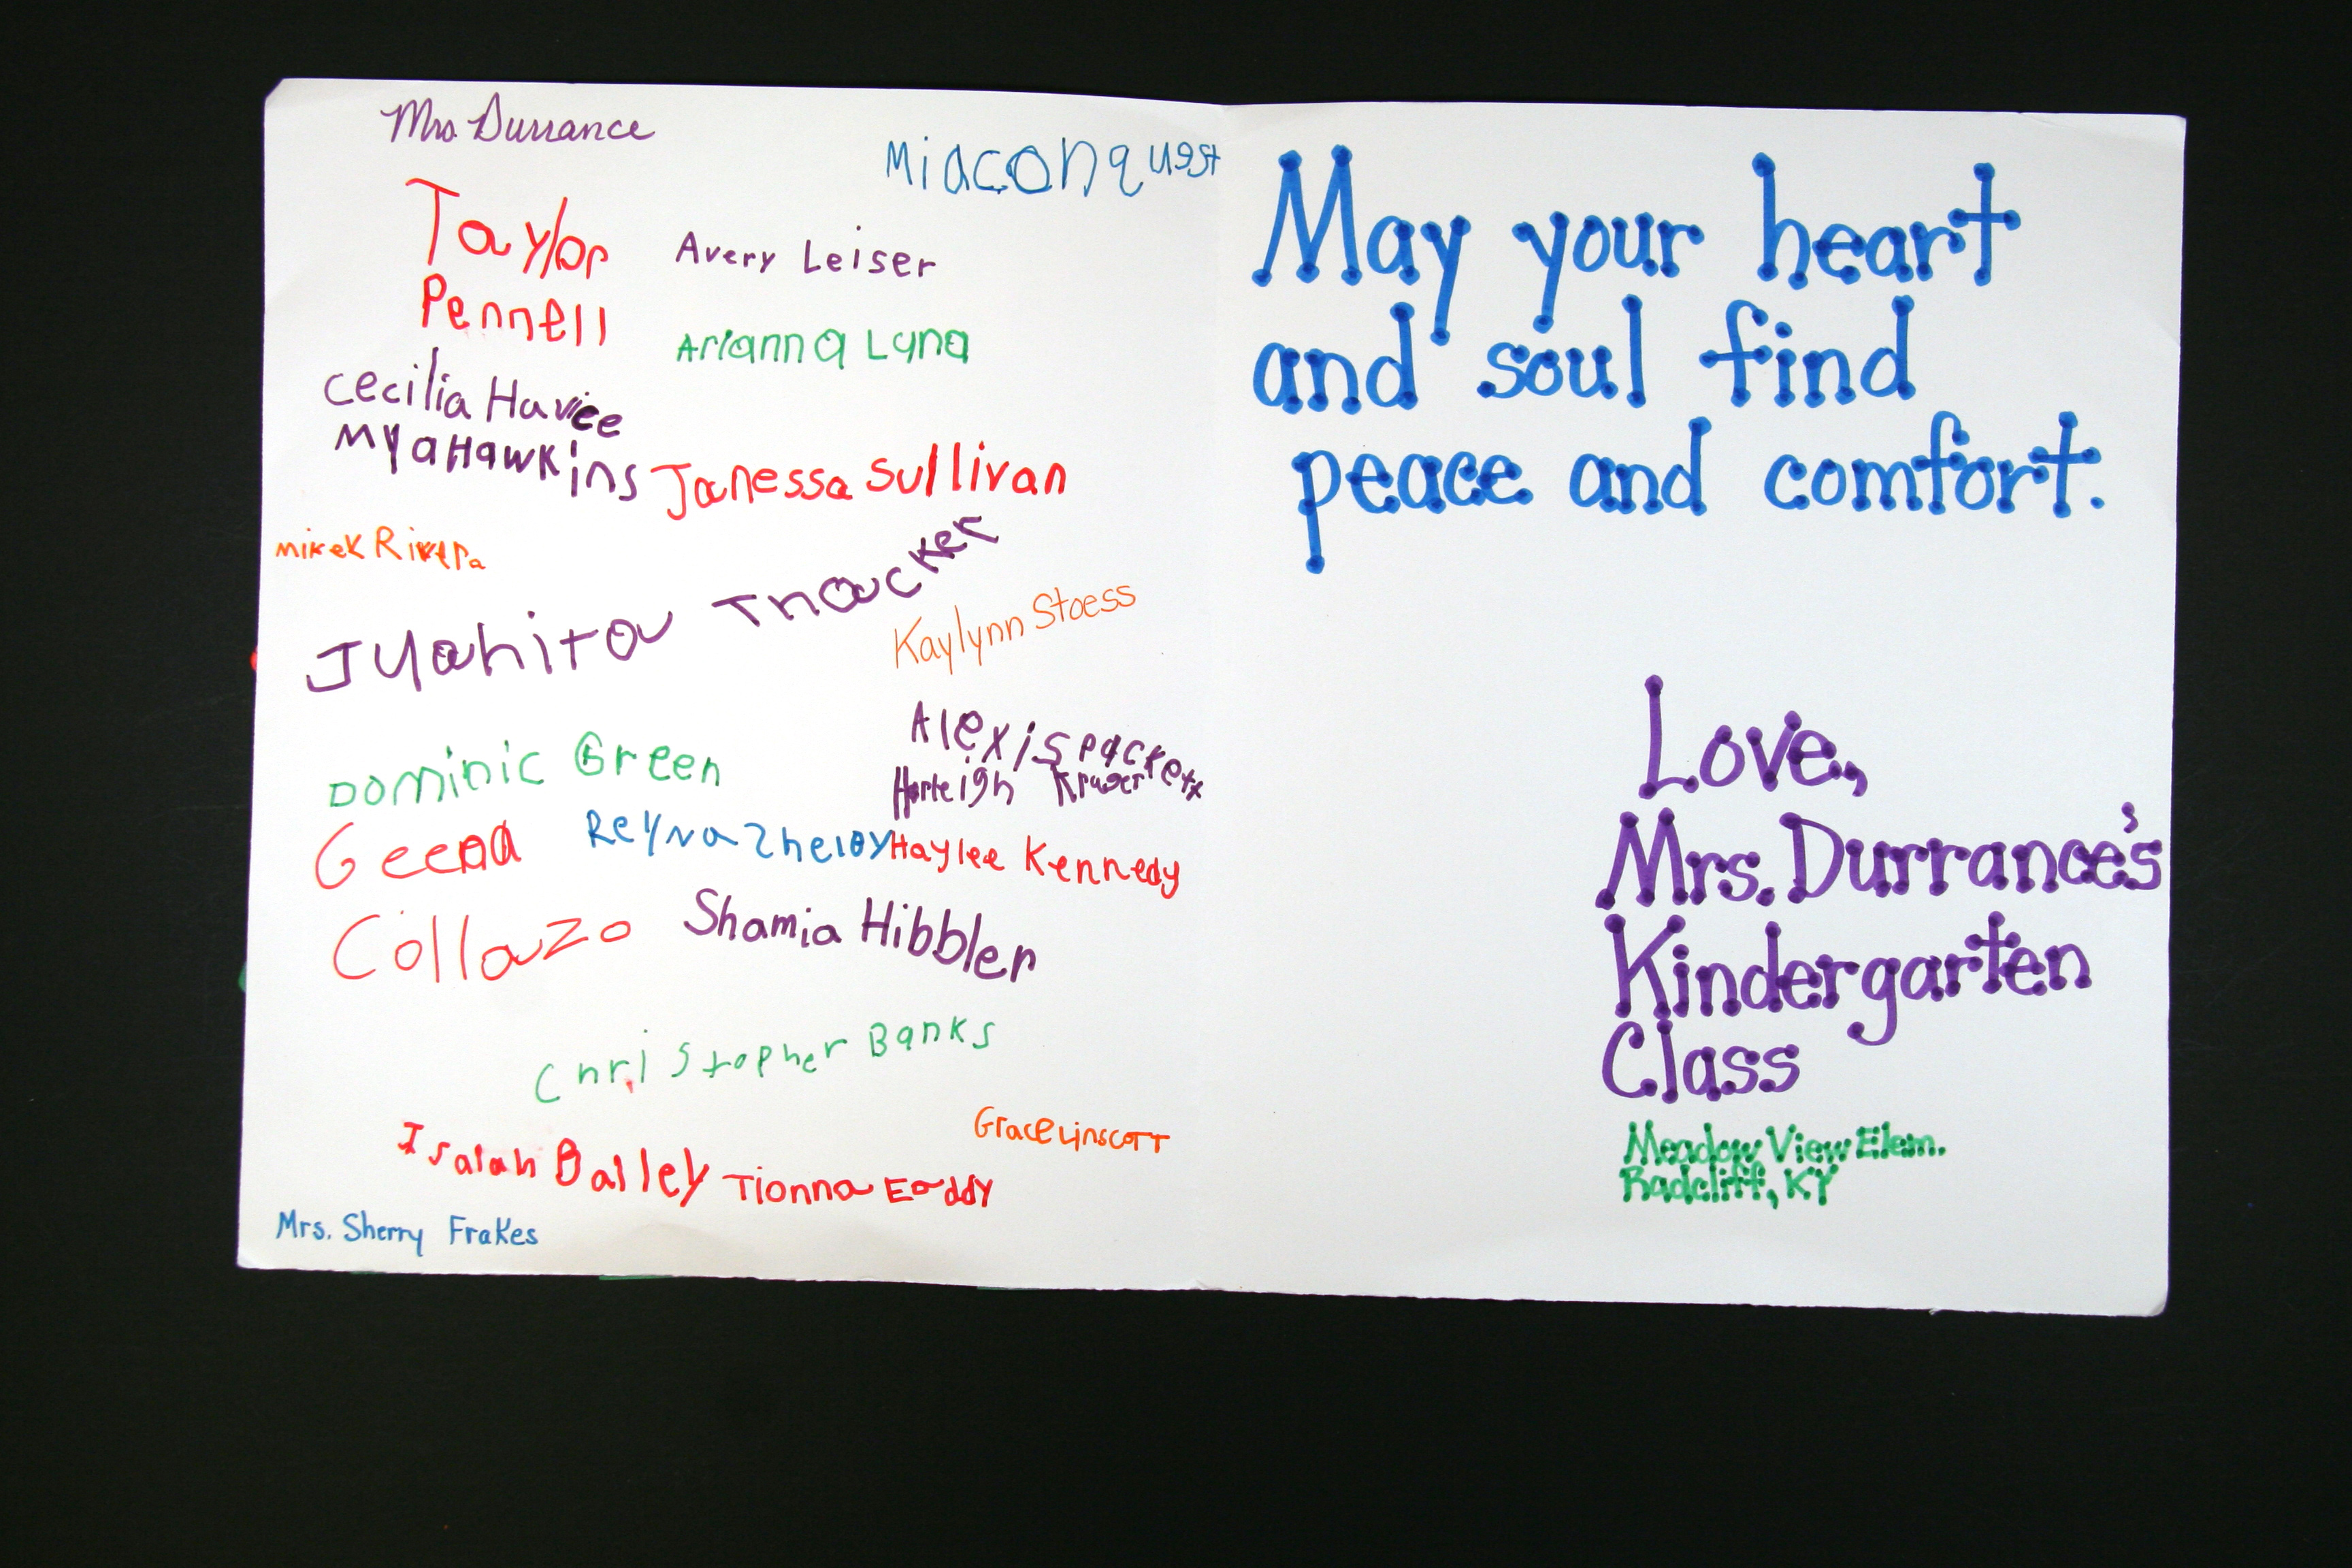 Mrs. Durrance
Miaconquest
Taylor
Pennell
Avery Leiser
Arianna Luna
Cecilia Havice
Mya Hawkins
Janessa Sullivan
mikek Rivera
Jyahitou Thacker
Kaylynn Stoess
Alexis Packett
Harleigh Kruger
Dominic Green
Geena
Collazo
Reyna
Haylee Kennedy
Shamia Hibbler
Christopher Banks
Grace Linscott
Isaiah Bailey
Tionna Eaddy
Mrs. Sherry Frakes
May your heart
and soul find
peace and comfort.
Love,
Mrs. Durrance's
Kindergarten
Class
Meadow View Elem.
Radcliff, KY